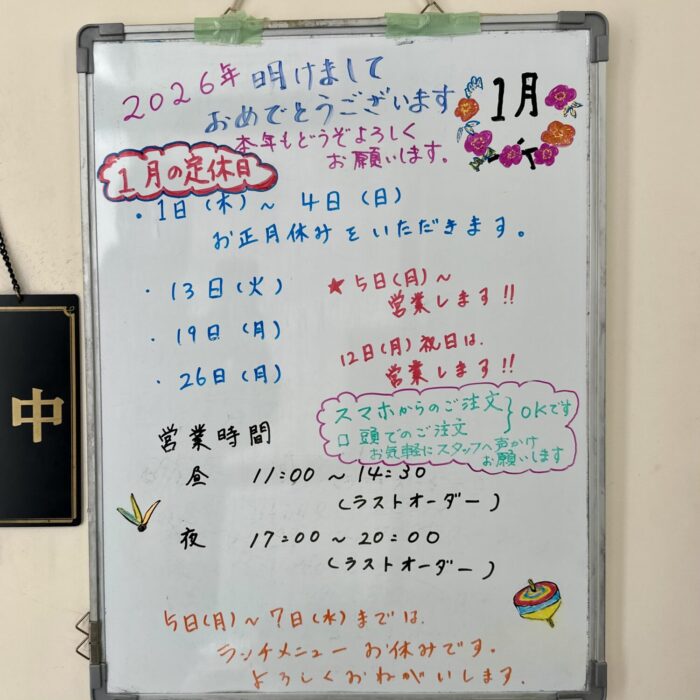 2026年 明けまして
おめでとうございます
本年もどうぞよろしく
お願いします。
1月
1月の定休日
・1日(木)～4日(日)
お正月休みをいただきます。
・13日(火)
・19日(月)
・26日(月)
★5日(月)～
営業します!!
12日(月)祝日は、
営業します!!
スマホからのご注文
口頭でのご注文
} OKです
お気軽にスタッフへ声かけ
お願いします
営業時間
昼 11:00～14:30
(ラストオーダー)
夜 17:00～20:00
(ラストオーダー)
5日(月)～7日(水)までは、
ランチメニュー お休みです。
よろしくおねがいします.
中